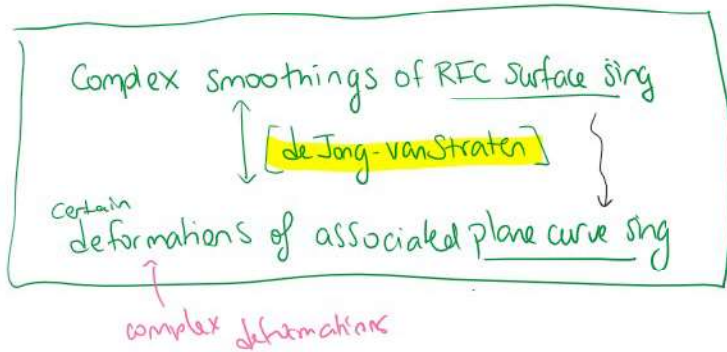 Complex smoothings of RFC surface sing
[de Jong-van Straten]
certain
deformations of associated plane curve sing
complex deformations